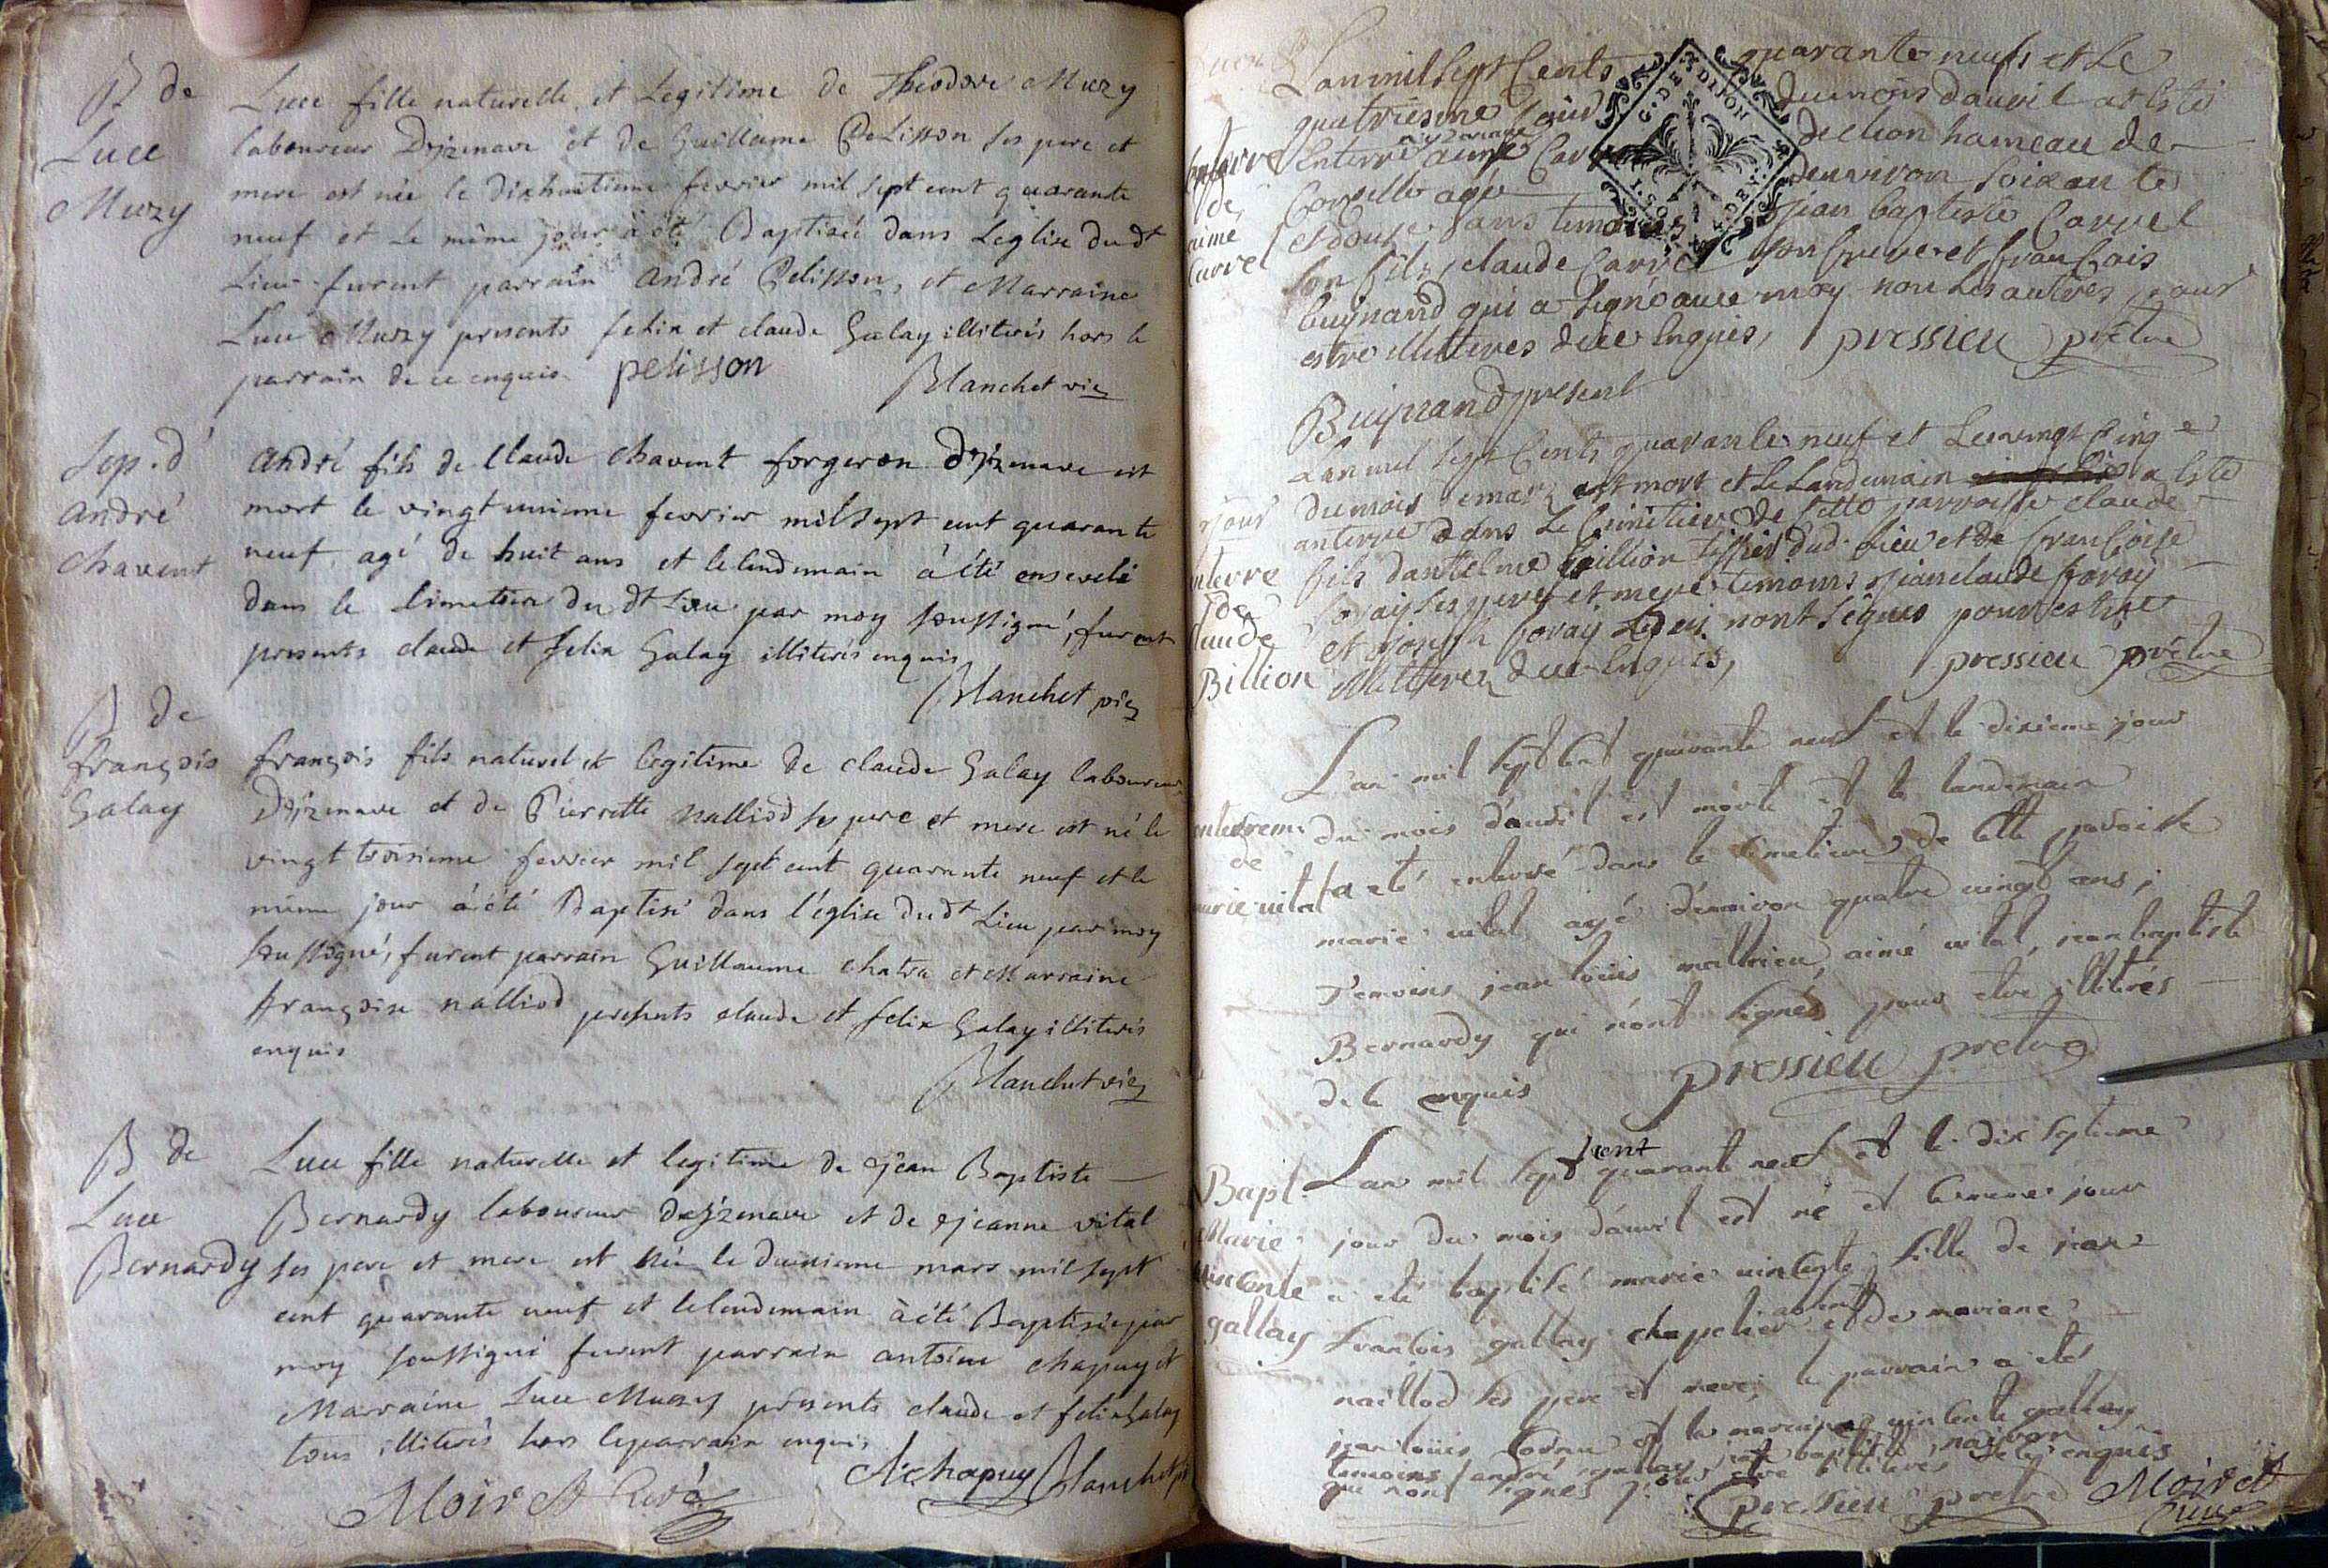 B de
Luce
Muzy
Luce fille naturelle et Legitime de Théodore Muzy
laboureur Dyzenave et de Guillauma Pelisson ses pere et
mere est née le dixhuitieme fevrier mil sept cent quarante
neuf et le même jour à été Baptisée dans l'eglise du dt
Lieu furent parrain andré Pelisson, et Marraine
Luce Muzy presents felix et claude Galay illiterés hors le
parrain de ce enquis. pelisson Blanchet vic
Sep. d'
andré
chavent
andré fils de Claude chavent forgeron dyzenave est
mort le vingt unieme fevrier mil sept cent quarante
neuf, agé de huit ans et le lendemain à été enseveli
dans le Cimetiere du dt Lieu par moy soussigné, furent
presents claude et felix Galay illiterés enquis
Blanchet vic
B de
françois
Galay
françois fils naturel et legitime de claude Galay laboureur
Dyzenave et de Pierrette nalliod ses pere et mere est né le
vingt troisieme fevrier mil sept cent quarante neuf et le
même jour à été Baptisé dans l'église du dt Lieu par moy
soussigné, furent parrain Guillaume chatra et Marraine
françoise nalliod presents claude et felix Galay illiterés
enquis
Blanchet vic
B de
Luce
Bernardy
Luce fille naturelle et legitime de jean Baptiste
Bernardy laboureur dyzenave et de jeanne vital
ses pere et mere est née le deuxieme mars mil sept
cent quarante neuf et le lendemain à été Baptisée par
moy soussigné furent parrain antoine chapuy et
Marraine Luce Muzy presents claude et felix Galay
tous illiterés hors le parrain enquis
Moiret Curé A chapuy Blanchet
Lan mil sept Cents quarante neufs et le
quatriesme jour du mois davril at esté
G. DE DIJON
Enterre
de
aime
Carrel
Enterré aimé Carrel de hameau de
Corcelle agée denviron soixante
et douse sans temoins jean baptiste Carrel
son fils, claude Carrel son frere et francois
buynand qui a signé avec moy non les autres pour
estre illitteres de ce Enquis, pressieu prêtre
Buynand present
Lan mil sept Cents quarante neuf et Le vingt Cinq e
jour
du mois demars est mort et Le Landemain a Esté
anterre dans Le Cimitiere de cette parroisse claude
enterre
de
claude
Billion
fils dantelme billion tissier dud. Lieu et de francoise
foray ses pere et mere temoins jean claude foray
et joseph foray nont signés pour estre
illitteres de ce Enquis, pressieu prêtre
Lan mil sept cent quarante neuf et le dixieme jour
enterrem.
de
marie vital
du mois d'avril est morte et le landemain
a eté enterré dans le Cimetiere de cette paroisse
marie vital agé d'environ quatre vingt ans;
Temoins jean louis mathieu, aimé vital, jean baptiste
Bernardy qui n'ont signés pour etre illitérés
de ce enquis pressieu prêtre
Bapt.
Marie
vincente
gallay
Lan mil sept cent quarante neuf et le dix septieme
jour du mois d'avril est né et le meme jour
a eté baptisé marie vincente; fille de jean
francois gallay chapelier et de mariane
naillod ses pere et mere; le parrain a eté
jean louis et la maraine vincente gallay
temoins andré gallay, jean baptiste
qui nont signés pour etre illiteres de ce enquis
pressieu prêtre Moiret
curé